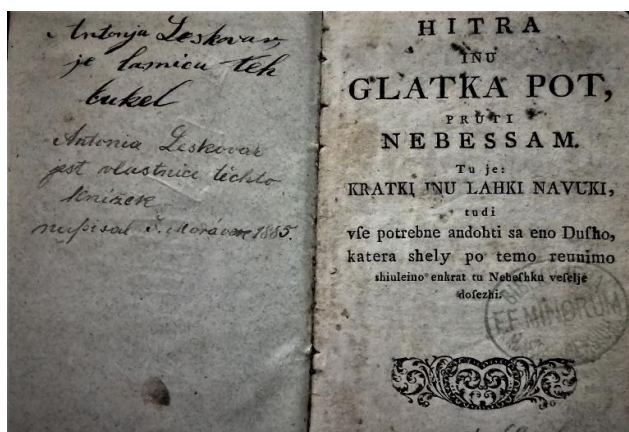 Antonja Leskovar,
je lasnica teh
bukel
Antonia Leskovar
jest vlastnice těchto
knížek
1885.
HITRA
INU
GLATKA POT,
PRUTI
NEBESSAM.
Tu je:
KRATKI INU LAHKI NAVUKI,
tudi
vſe potrebne andohti sa eno Duſho,
katera shely po temo reunimo
shiuleino enkrat tu Nebeſhku veſelje
doſezhi.
EF MINORUM